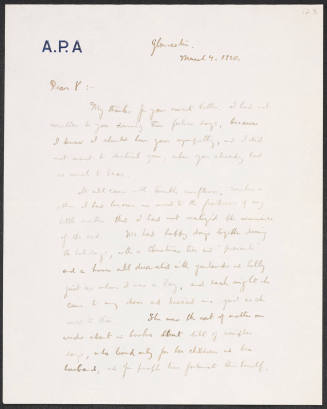 A.P.A
Gloucester.
March 4, 1920.
Dear P :-
My thanks for your sweet letter. I had not
written to you during these fateful days, because
I knew I should have your sympathy, and I did
not want to distract you, when you already had
so much to bear.
It all came with terrible
other I had become so used to the of my
little mother that I had not realized the
of the end. We had happy days together during
the holidays, with a Christmas tree and "presents"
and a house all decorated with garlands as
just as when I was a boy, and each night she
came to my door and kissed me just as she
used to then. She was the sort of mother one
reads about in books about of simpler
days, who lived only for her children and her
husband, and for people less fortunate than herself.